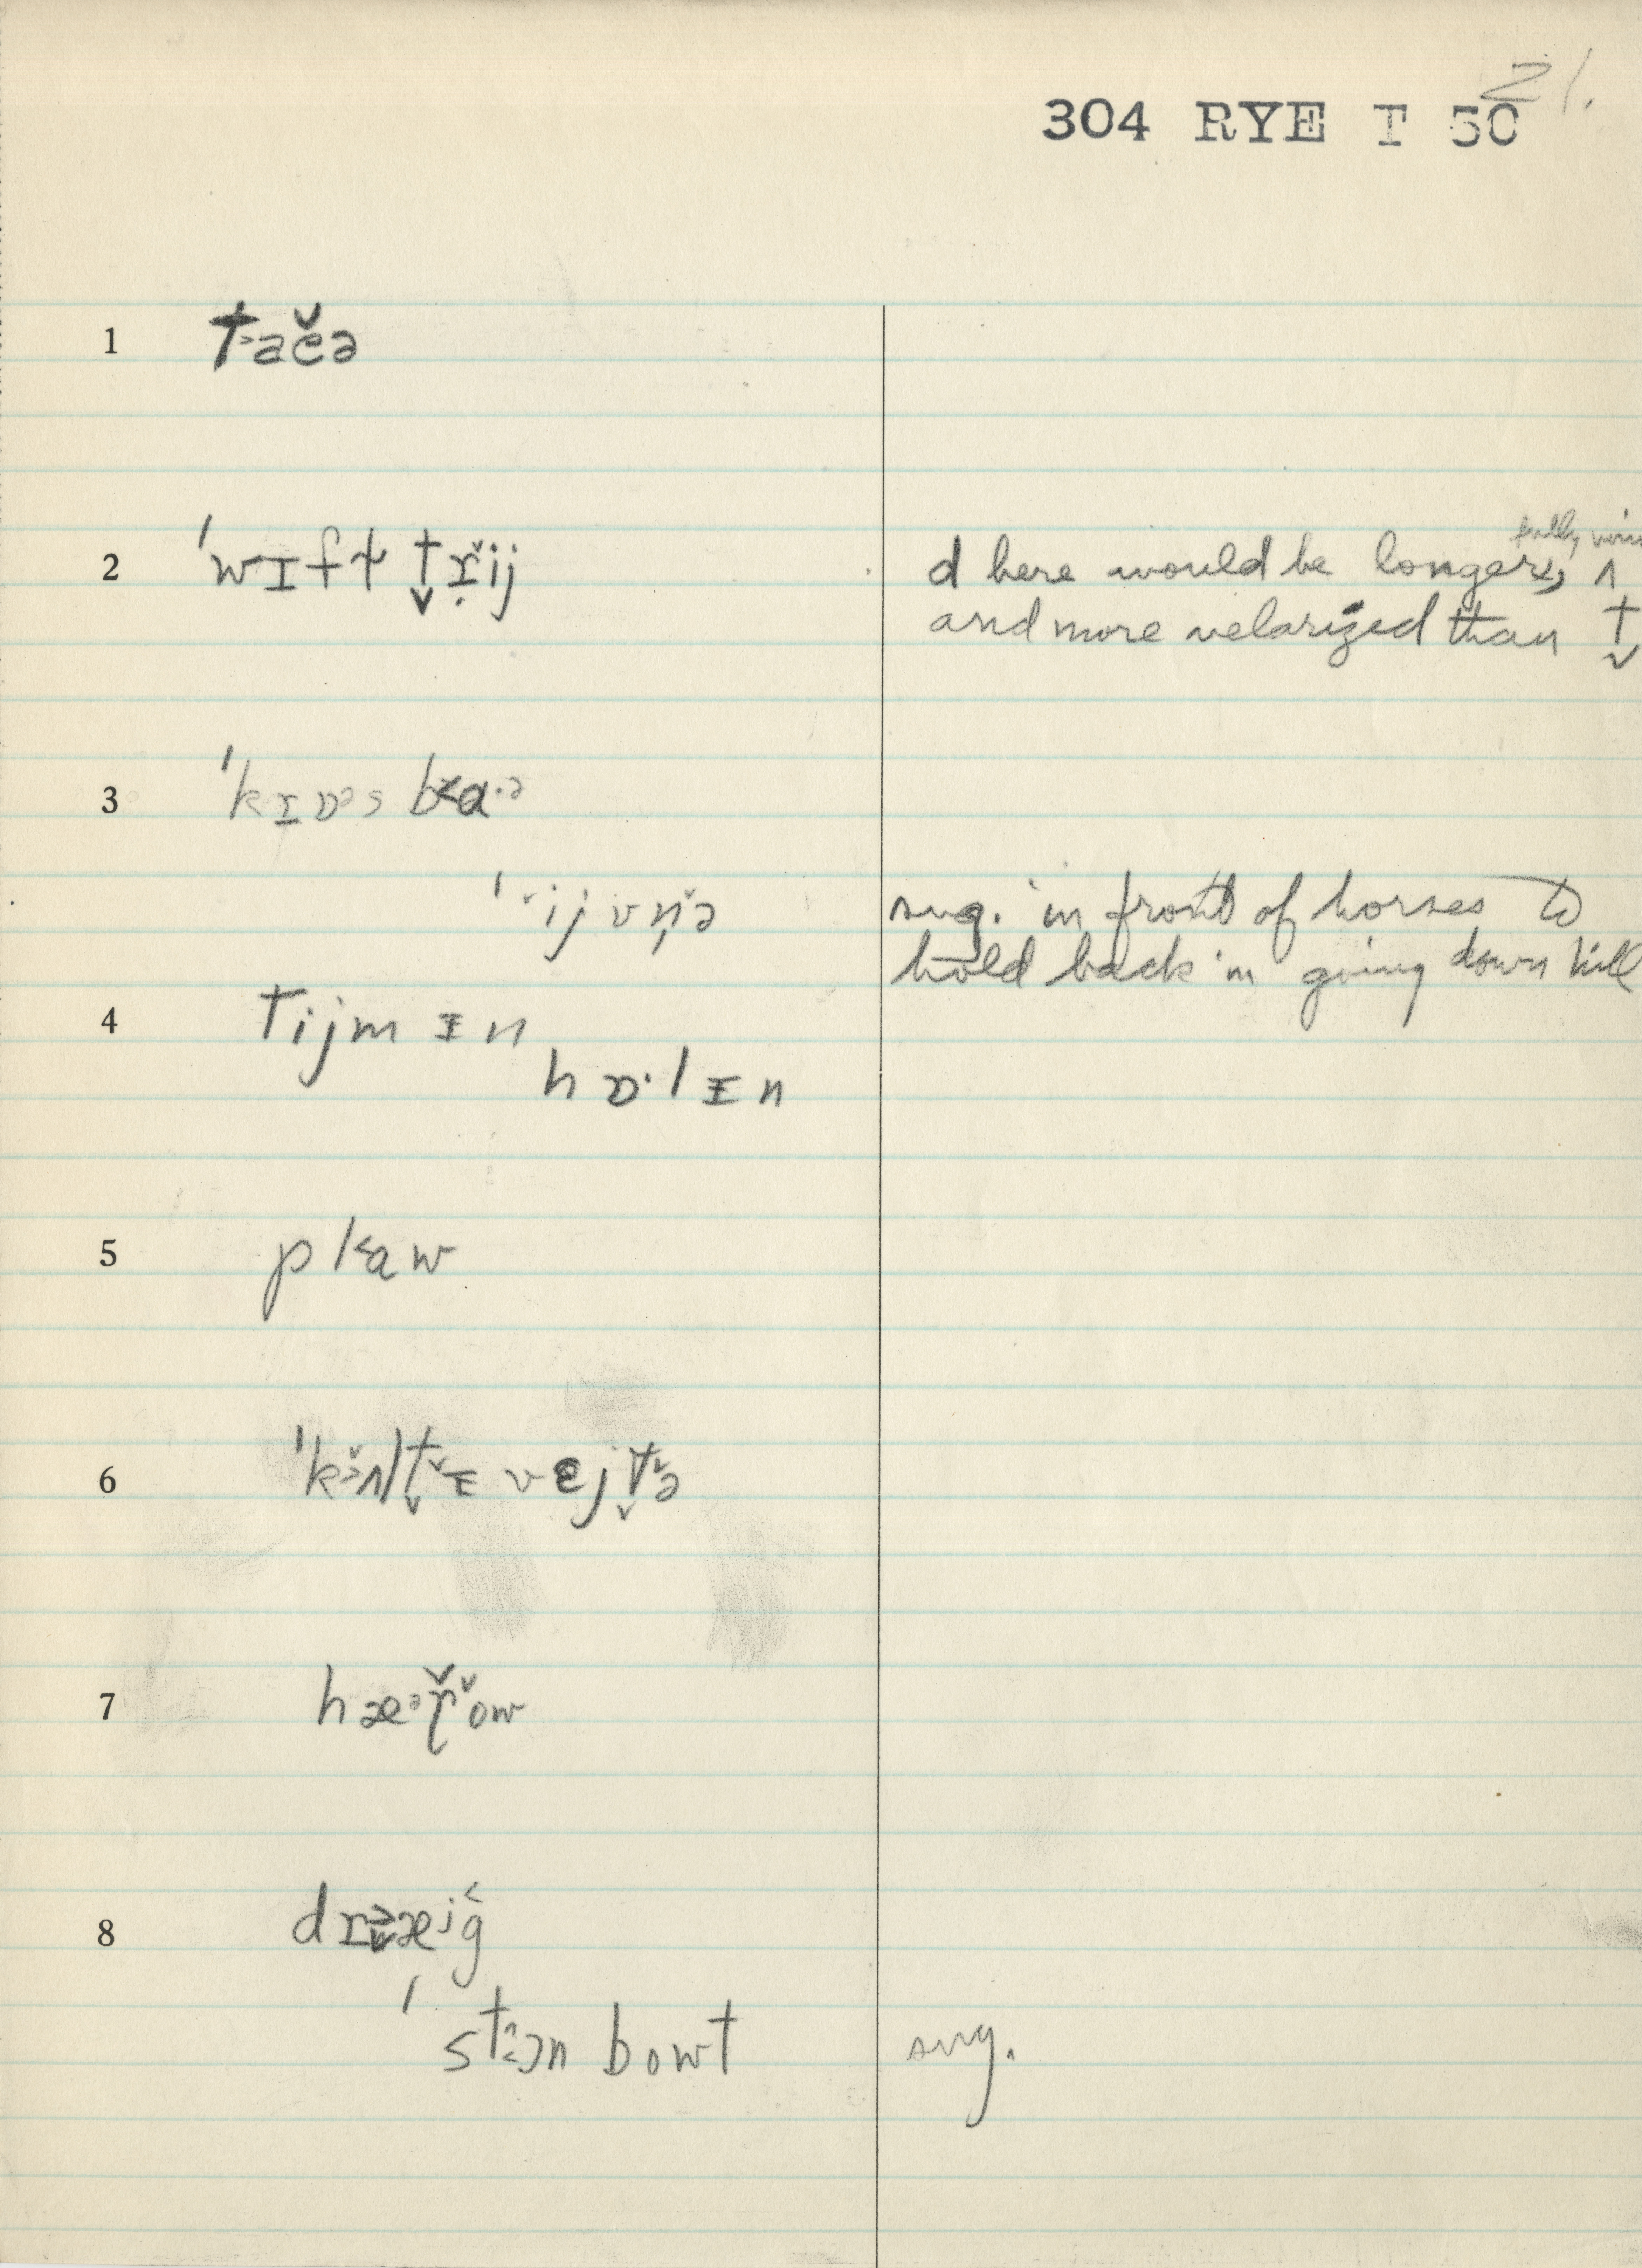 21.
304 RYE T 50
1 t˃ačə
2 ˈwɪft t̬ř̬ij
d here would be longer, fully
and more velarized than t̬
3 ˈkɪɒᵊs b˂ɑ·ᵊ
ˈij vn̩ˇə
sug. in front of horses to
hold back in going down hill
4 tijm ɪn
hɒ·lɪn
5 pl˂aw
6 ˈk˃ʌlt̬ɪ vejt̬ə
7 hæ·ᵊřˇow
8 dr˃æjg̑
ˈst ɔn bowt
sug.